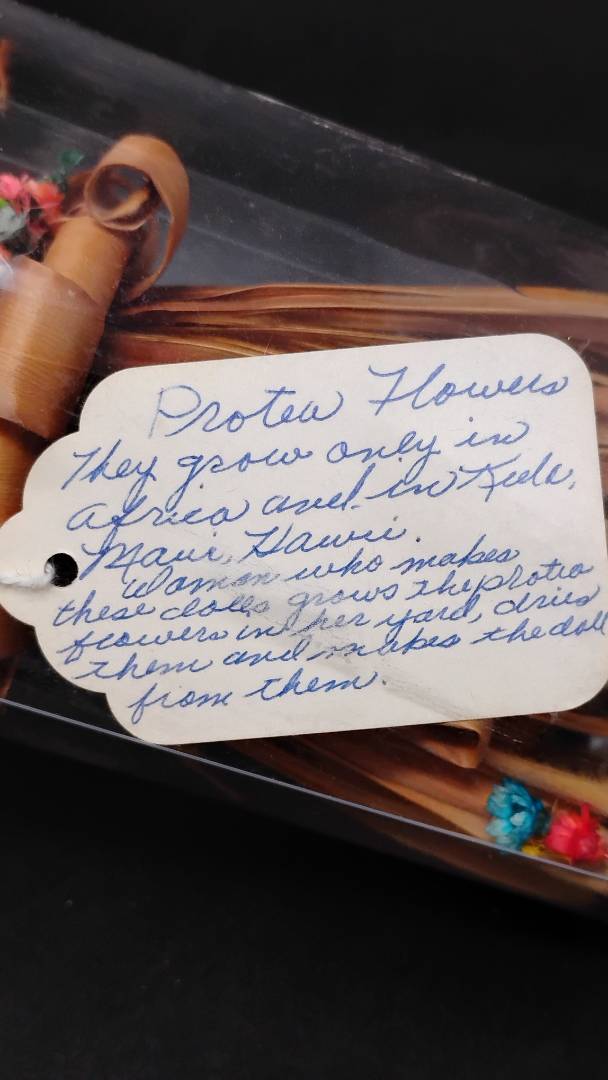 Protea Flowers
They grow only in
Africa and in Kula,
Maui, Hawii.
Woman who makes
these dolls grows the protea
flowers in her yard, dries
them and makes the doll
from them.